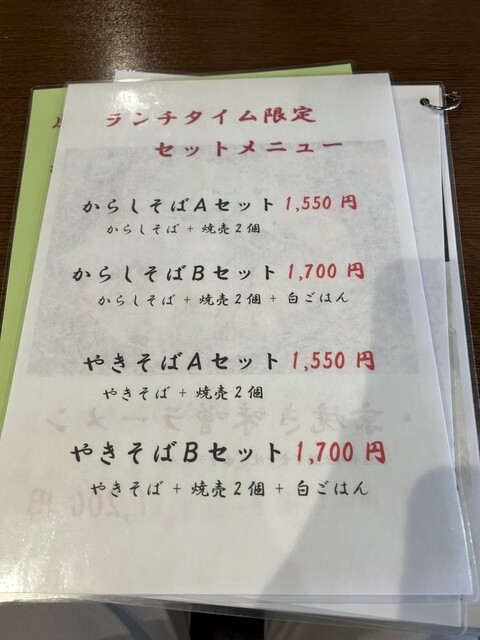 ランチタイム限定
セットメニュー
からしそばAセット 1,550円
からしそば + 焼売2個
からしそばBセット 1,700円
からしそば + 焼売2個 + 白ごはん
やきそばAセット 1,550円
やきそば + 焼売2個
やきそばBセット 1,700円
やきそば + 焼売2個 + 白ごはん